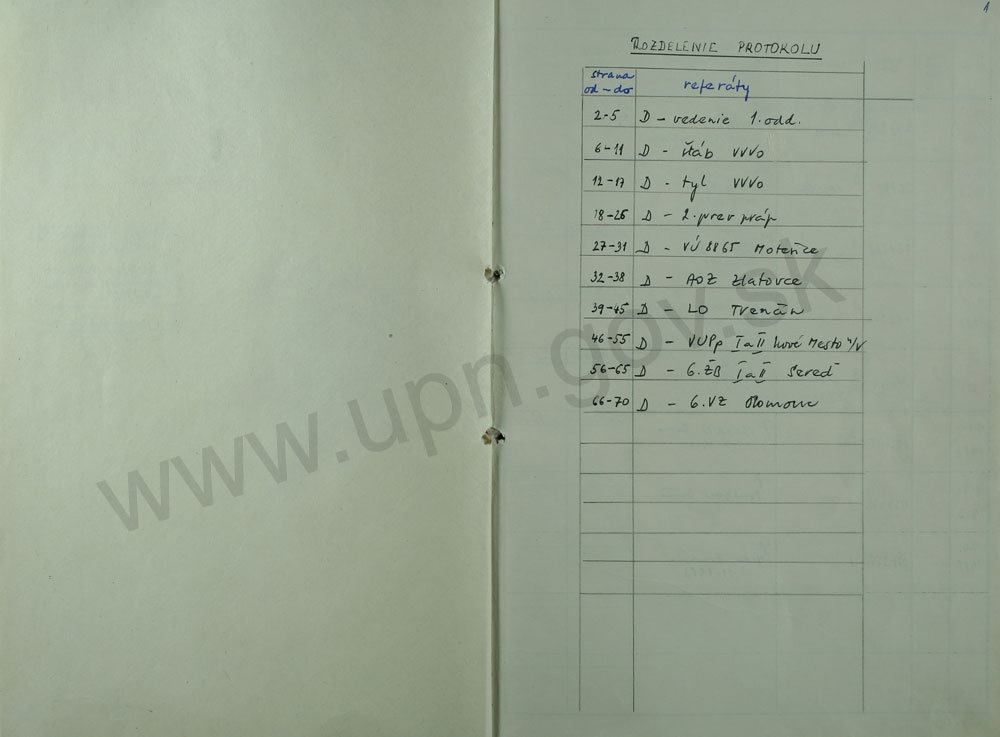 1
ROZDELENIE PROTOKOLU
strana od – do referáty
2-5 D – vedenie 1. odd.
6-11 D - štáb VVVO
12-17 D - tyl VVVO
18-26 D - 2. prev práp
27-31 D - VÚ 8865 Motešice
32-38 D - AOZ Zlatovce
39-45 D - LO Trenčín
46-55 D - VUPp I a II Nové Mesto n/V
56-65 D - 6. ŽB I a II Sereď
66-70 D - 6. VZ Olomouc
www.upn.gov.sk